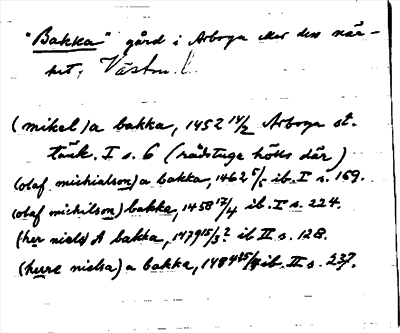 "Bakka" gård i Arboga eller dess när-
het, Västm. l.
(mikel) a bakka, 1452 14/2 Arboga st.
tänk. I s. 6 (rådstuge hölls där)
(olaf michialson) a bakka, 1462 5/5 ib. I s. 169.
(olaf michilson) bakka, 1458 17/4 ib. I s. 224.
(her niels) A bakka, 1479 15/3? ib II s. 128.
(herre nielsa) a bakka, ib. II s. 237.